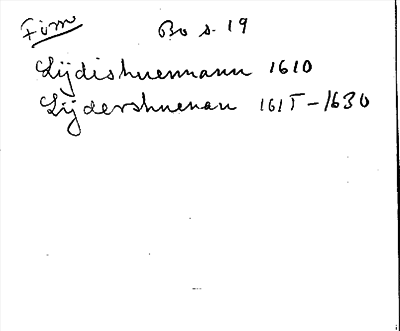 Fiom Bo s. 19
Lÿdishuemann 1610
Lÿdershuenau 161T-1630